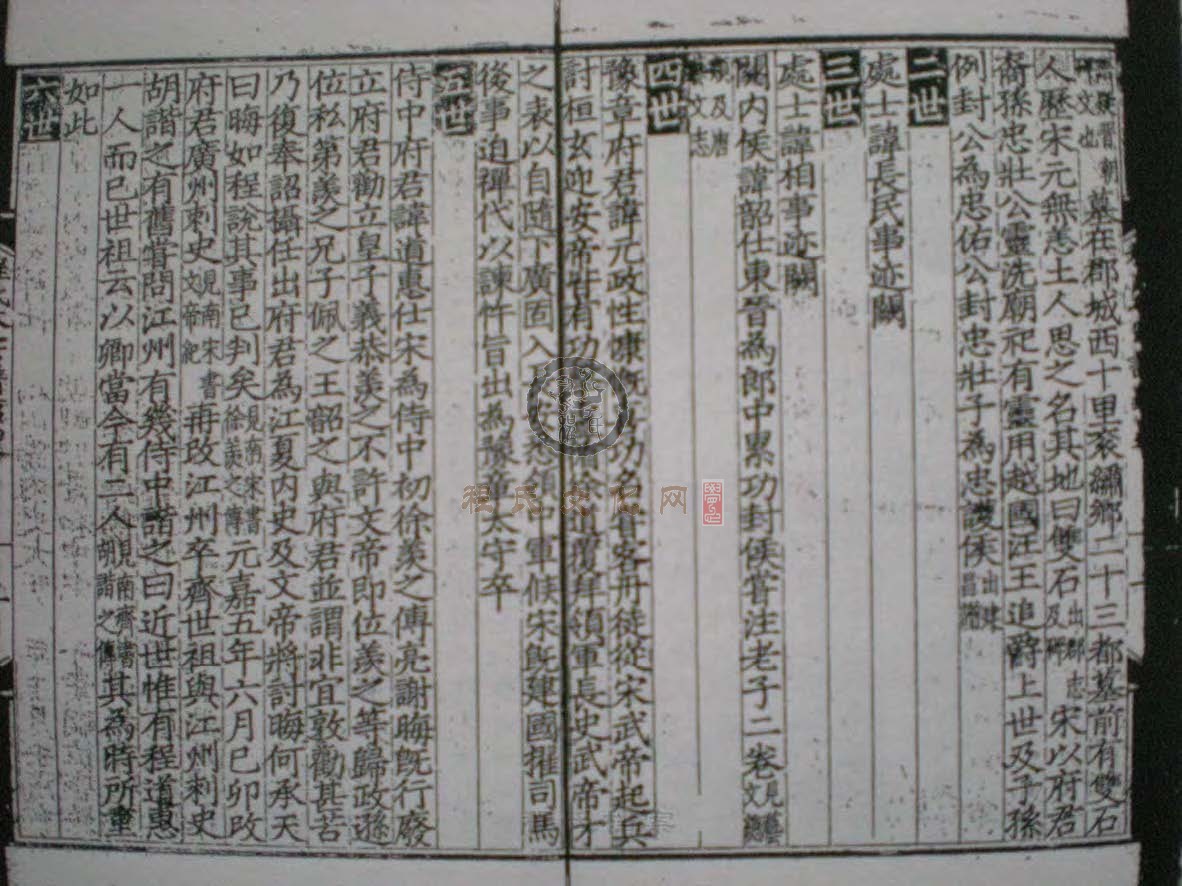 墓在郡城西十里衮繡鄉二十三都墓前有雙石
人歷宋元無恙土人思之名其地曰雙石出郡志及碑宋以府君
裔孫忠壯公靈洗廟祀有靈用越國汪王追爵上世及子孫
例封公為忠佑公封忠壯子為忠護侯
二世
處士諱長民事迹闕
三世
處士諱相事迹闕
關内侯諱韶仕東晉為郎中累功封侯嘗注老子二卷
四世
豫章府君諱元政性慷慨
徒從宋武帝起兵
討桓玄迎安帝皆有功
徐道覆拜領軍長史武帝才
之表以自隨下廣固入
軍候宋既建國擢司馬
後事迫禪代以諫忤旨出為豫章太守卒
五世
侍中府君諱道惠仕宋為侍中初徐羨之傅亮謝晦既行廢
立府君勸立皇子義恭羨之不許文帝即位羨之等歸政遜
位私第羨之兄子佩之王韶之與府君並謂非宜敦勸甚苦
乃復奉詔攝任出府君為江夏内史及文帝將討晦何承天
曰晦如程說其事已判矣見南宋書徐羨之傳元嘉五年六月己卯改
府君廣州刺史見南宋書文帝紀再改江州卒齊世祖與江州刺史
胡諧之有舊嘗問江州有幾侍中諧之曰近世惟有程道惠
一人而已世祖云以卿當今有二人見南齊書胡諧之傳其為時所重
如此
六世
程氏文化网